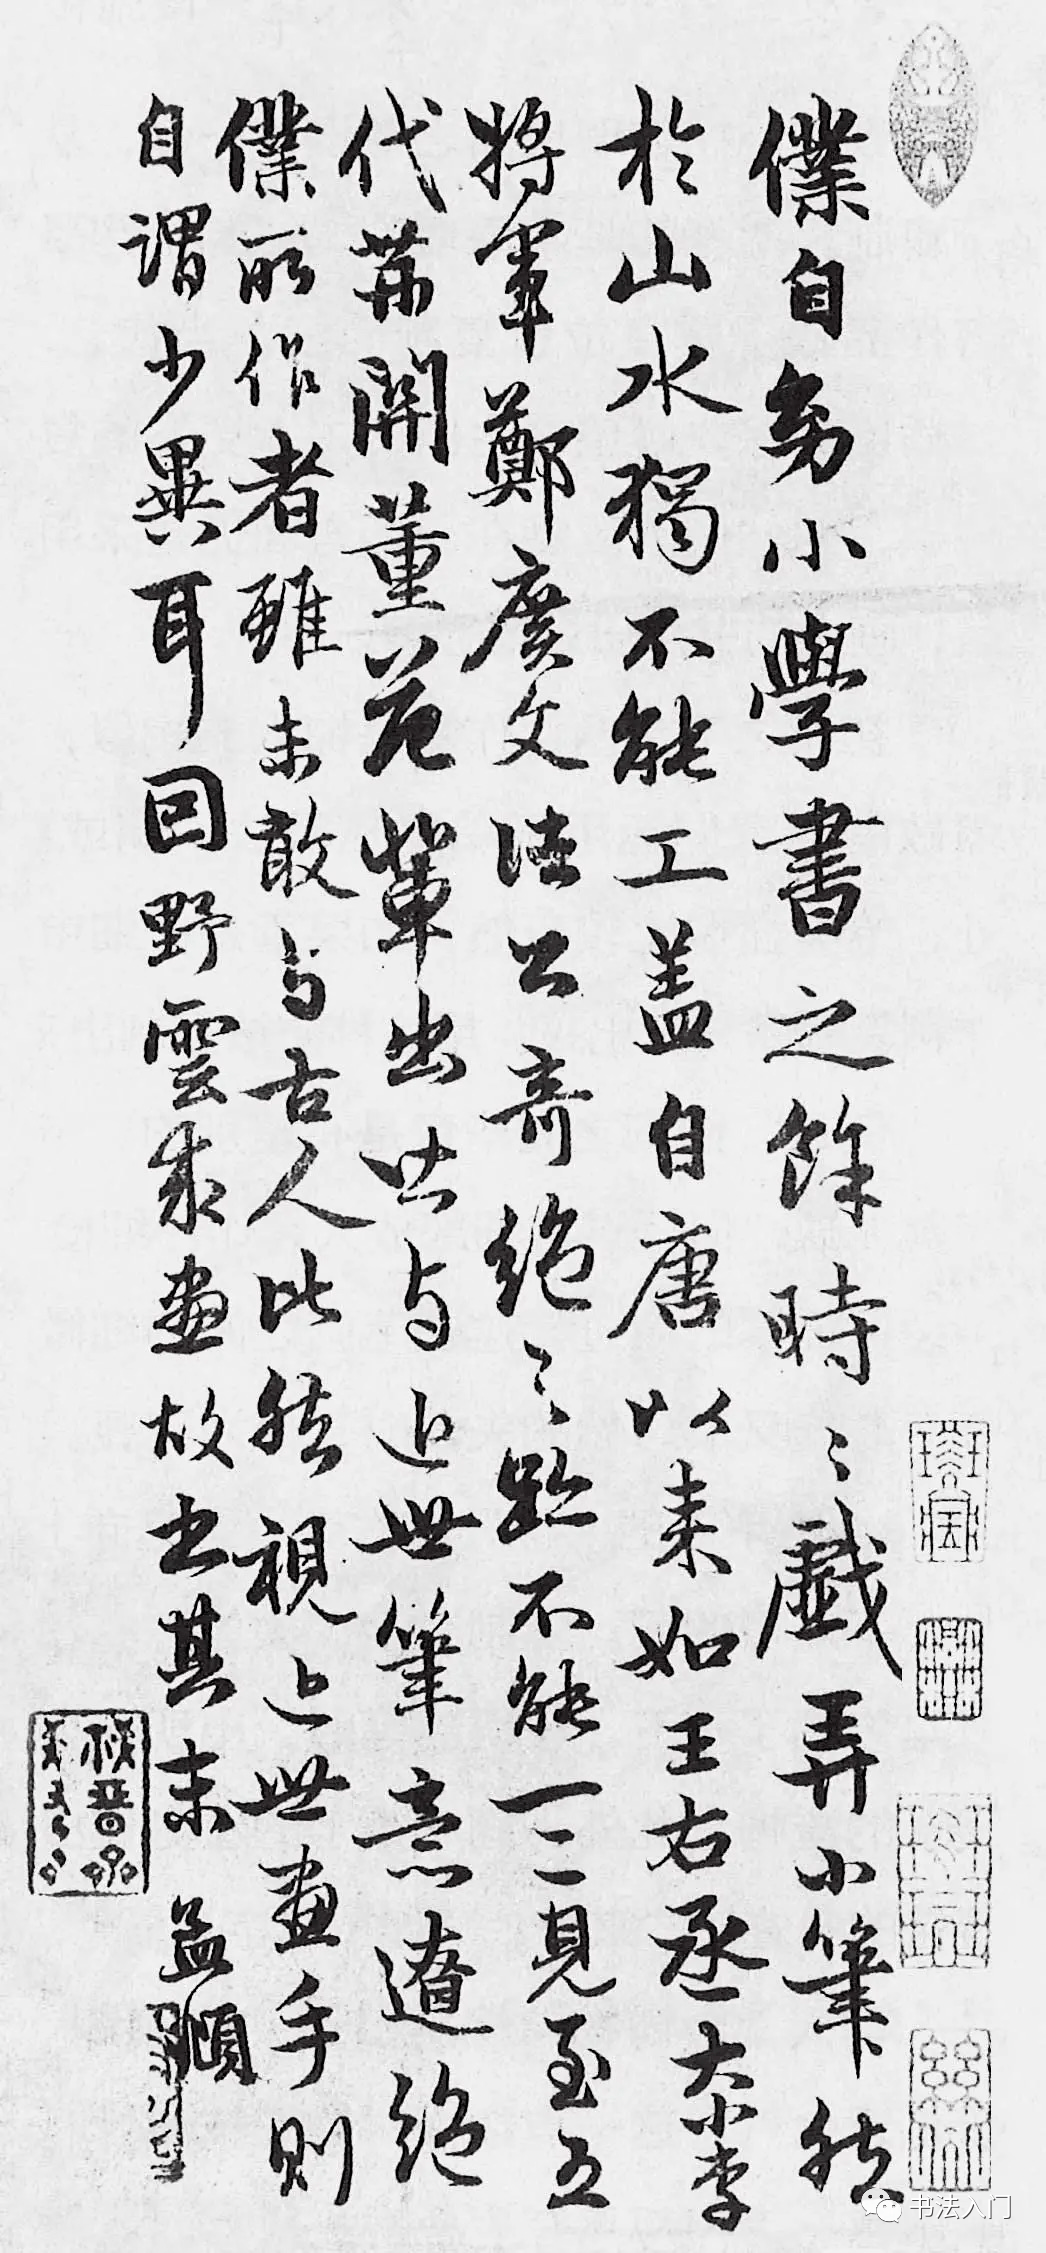 僕自幼小學書之餘時〻戲弄小筆然
於山水獨不能工蓋自唐以來如王右丞大小李
將軍鄭廣文諸公奇絕〻跡不能一二見至五
代荊關董范輩出皆與近世筆意遼絕
僕所作者雖未敢與古人比然視近世畫手則
自謂少異耳因野雲求畫故書其末 孟頫
書法入门